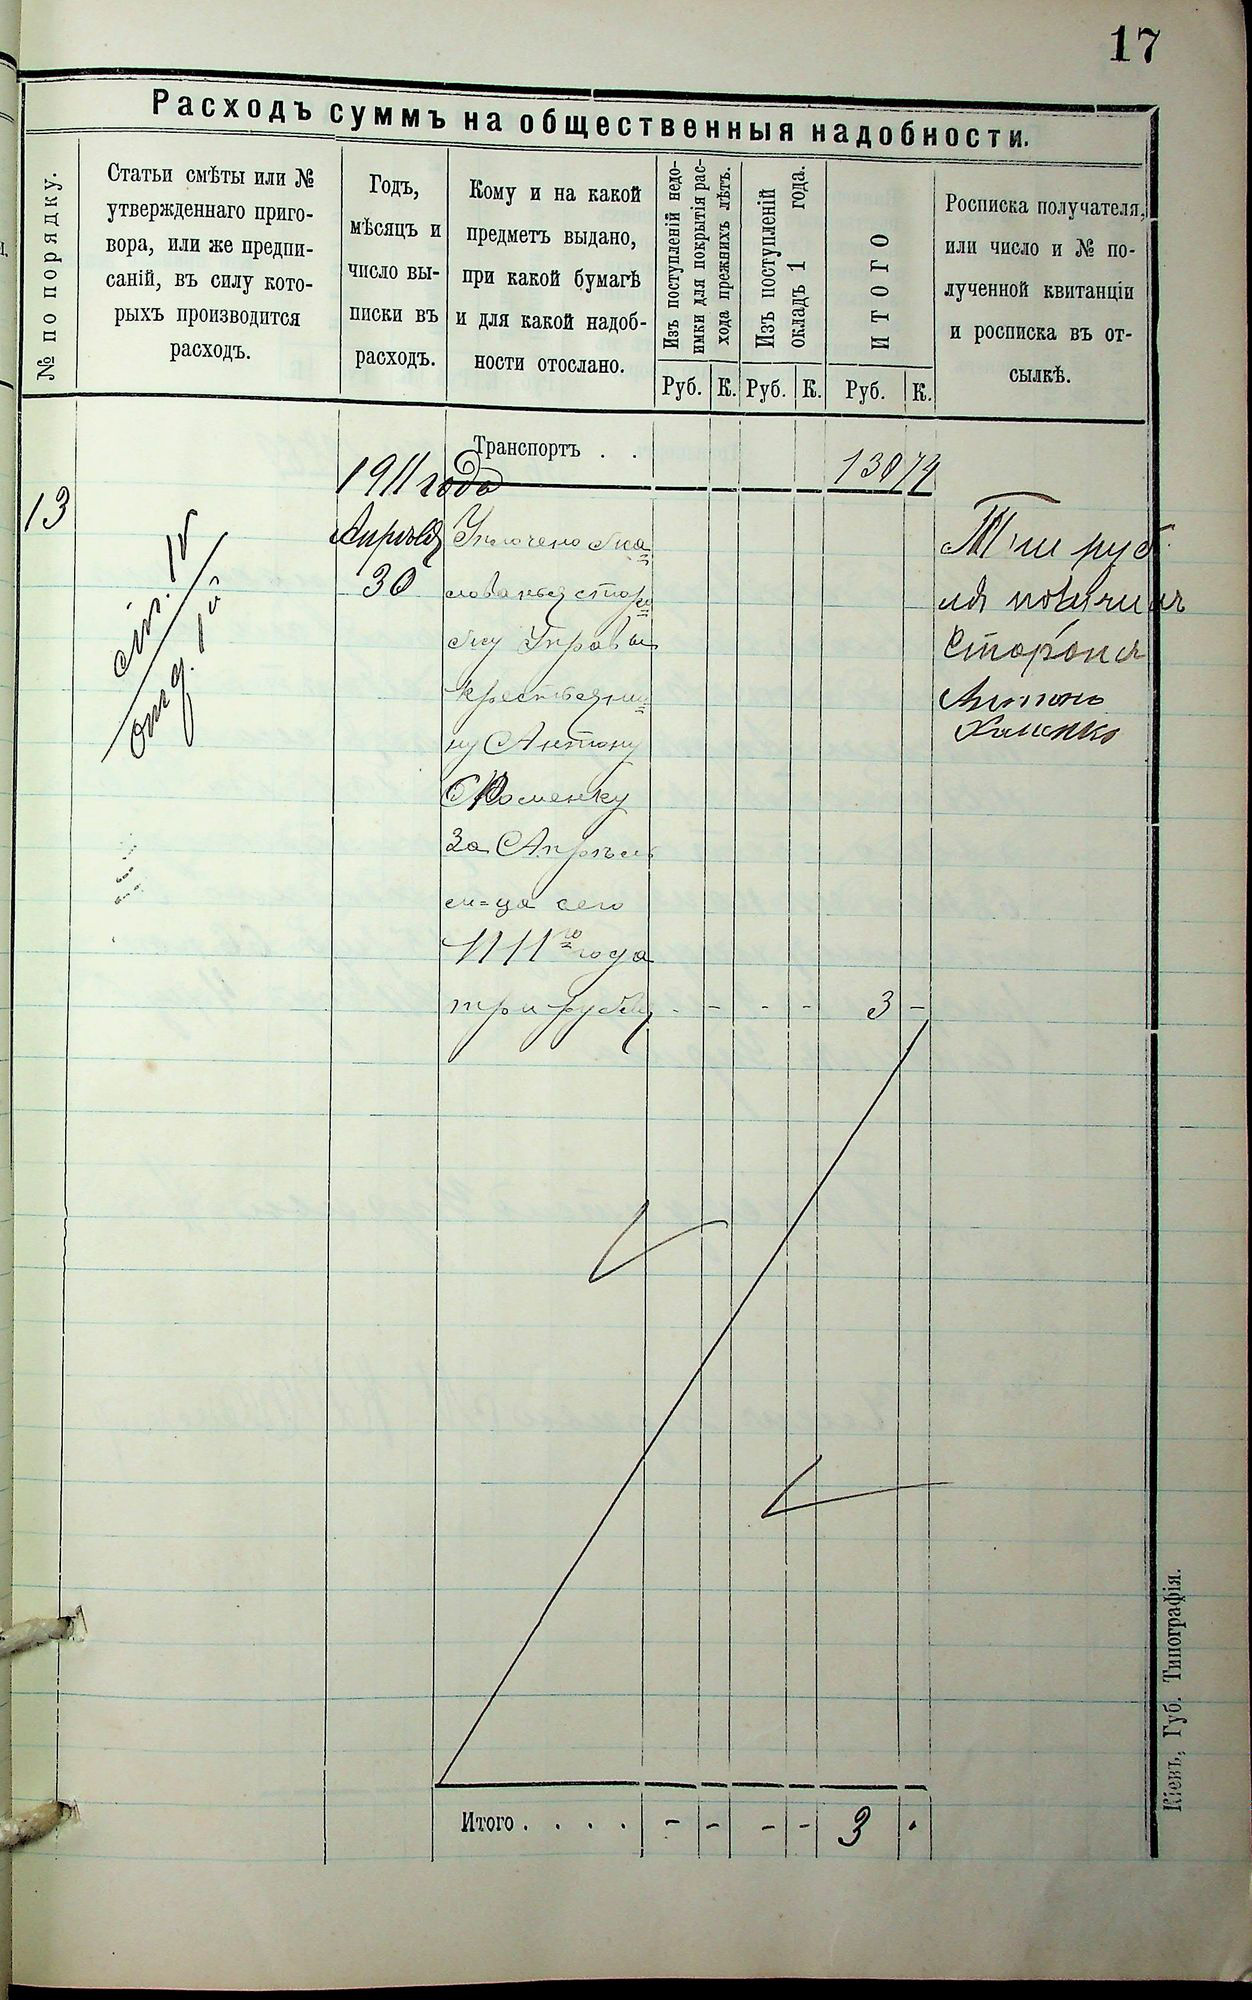 17
Расходъ суммъ на общественныя надобности.
№ по порядку.
Статьи смѣты или №
утвержденнаго приго-
вора, или же предпи-
саній, въ силу кото-
рыхъ производится
расходъ.
Годъ,
мѣсяцъ и
число вы-
писки въ
расходъ.
Кому и на какой
предметъ выдано,
при какой бумагѣ
и для какой надоб-
ности отослано.
Изъ поступленій недо-
имки для покрытія рас-
хода прежнихъ лѣтъ.
Изъ поступленій
окладъ 1 года.
ИТОГО
Росписка получателя,
или число и № по-
лученной квитанціи
и росписка въ от-
сылкѣ.
Руб. К. Руб. К. Руб. К.
Транспортъ . .
130 74
1911 года
13
ст. IV
отд. 1й
Апрѣля
30
Уплочено жа
лованья сторо
жу Управы
крестьяни
ну Антону
Хоменку
За Апрѣль
м=ца сего
1911го года
три рубля - - - - 3 -
Три руб
ля получилъ
Сторожъ
Антонъ
Хоменко
Итого . . . . - - - - 3 .
Кіевъ, Губ. Типографія.